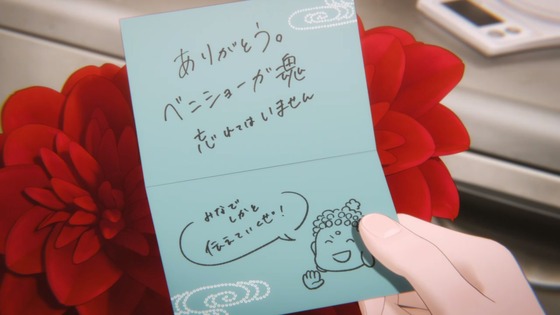 ありがとう。
ベニショーが魂
忘れてはいません
みなで
しかと
伝えていくぜ!